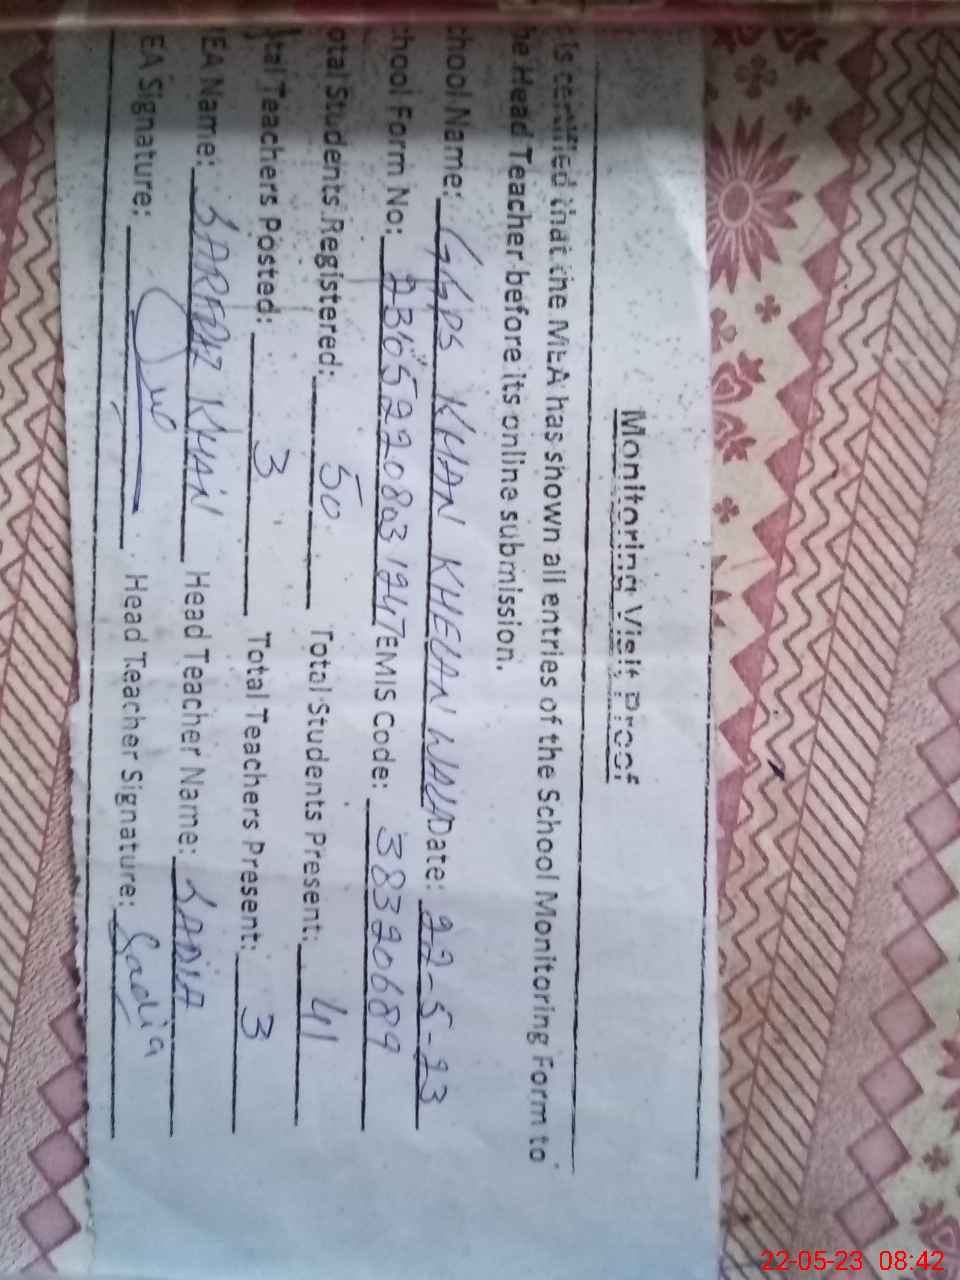 Monitoring Visit Proof
is certified that the MEA has shown all entries of the School Monitoring Form to
he Head Teacher before its online submission.
chool Name: GGPS KHAN KHELAN WALI Date: 22-5-23
chool Form No: 23052208031247 EMIS Code: 38320689
otal Students Registered: 50 Total Students Present: 41
tal Teachers Posted: 3 Total Teachers Present: 3
EA Name: SARFRAZ KHAN Head Teacher Name: SADIA
EA Signature: Head Teacher Signature: Sadia
22-05-23 08:42